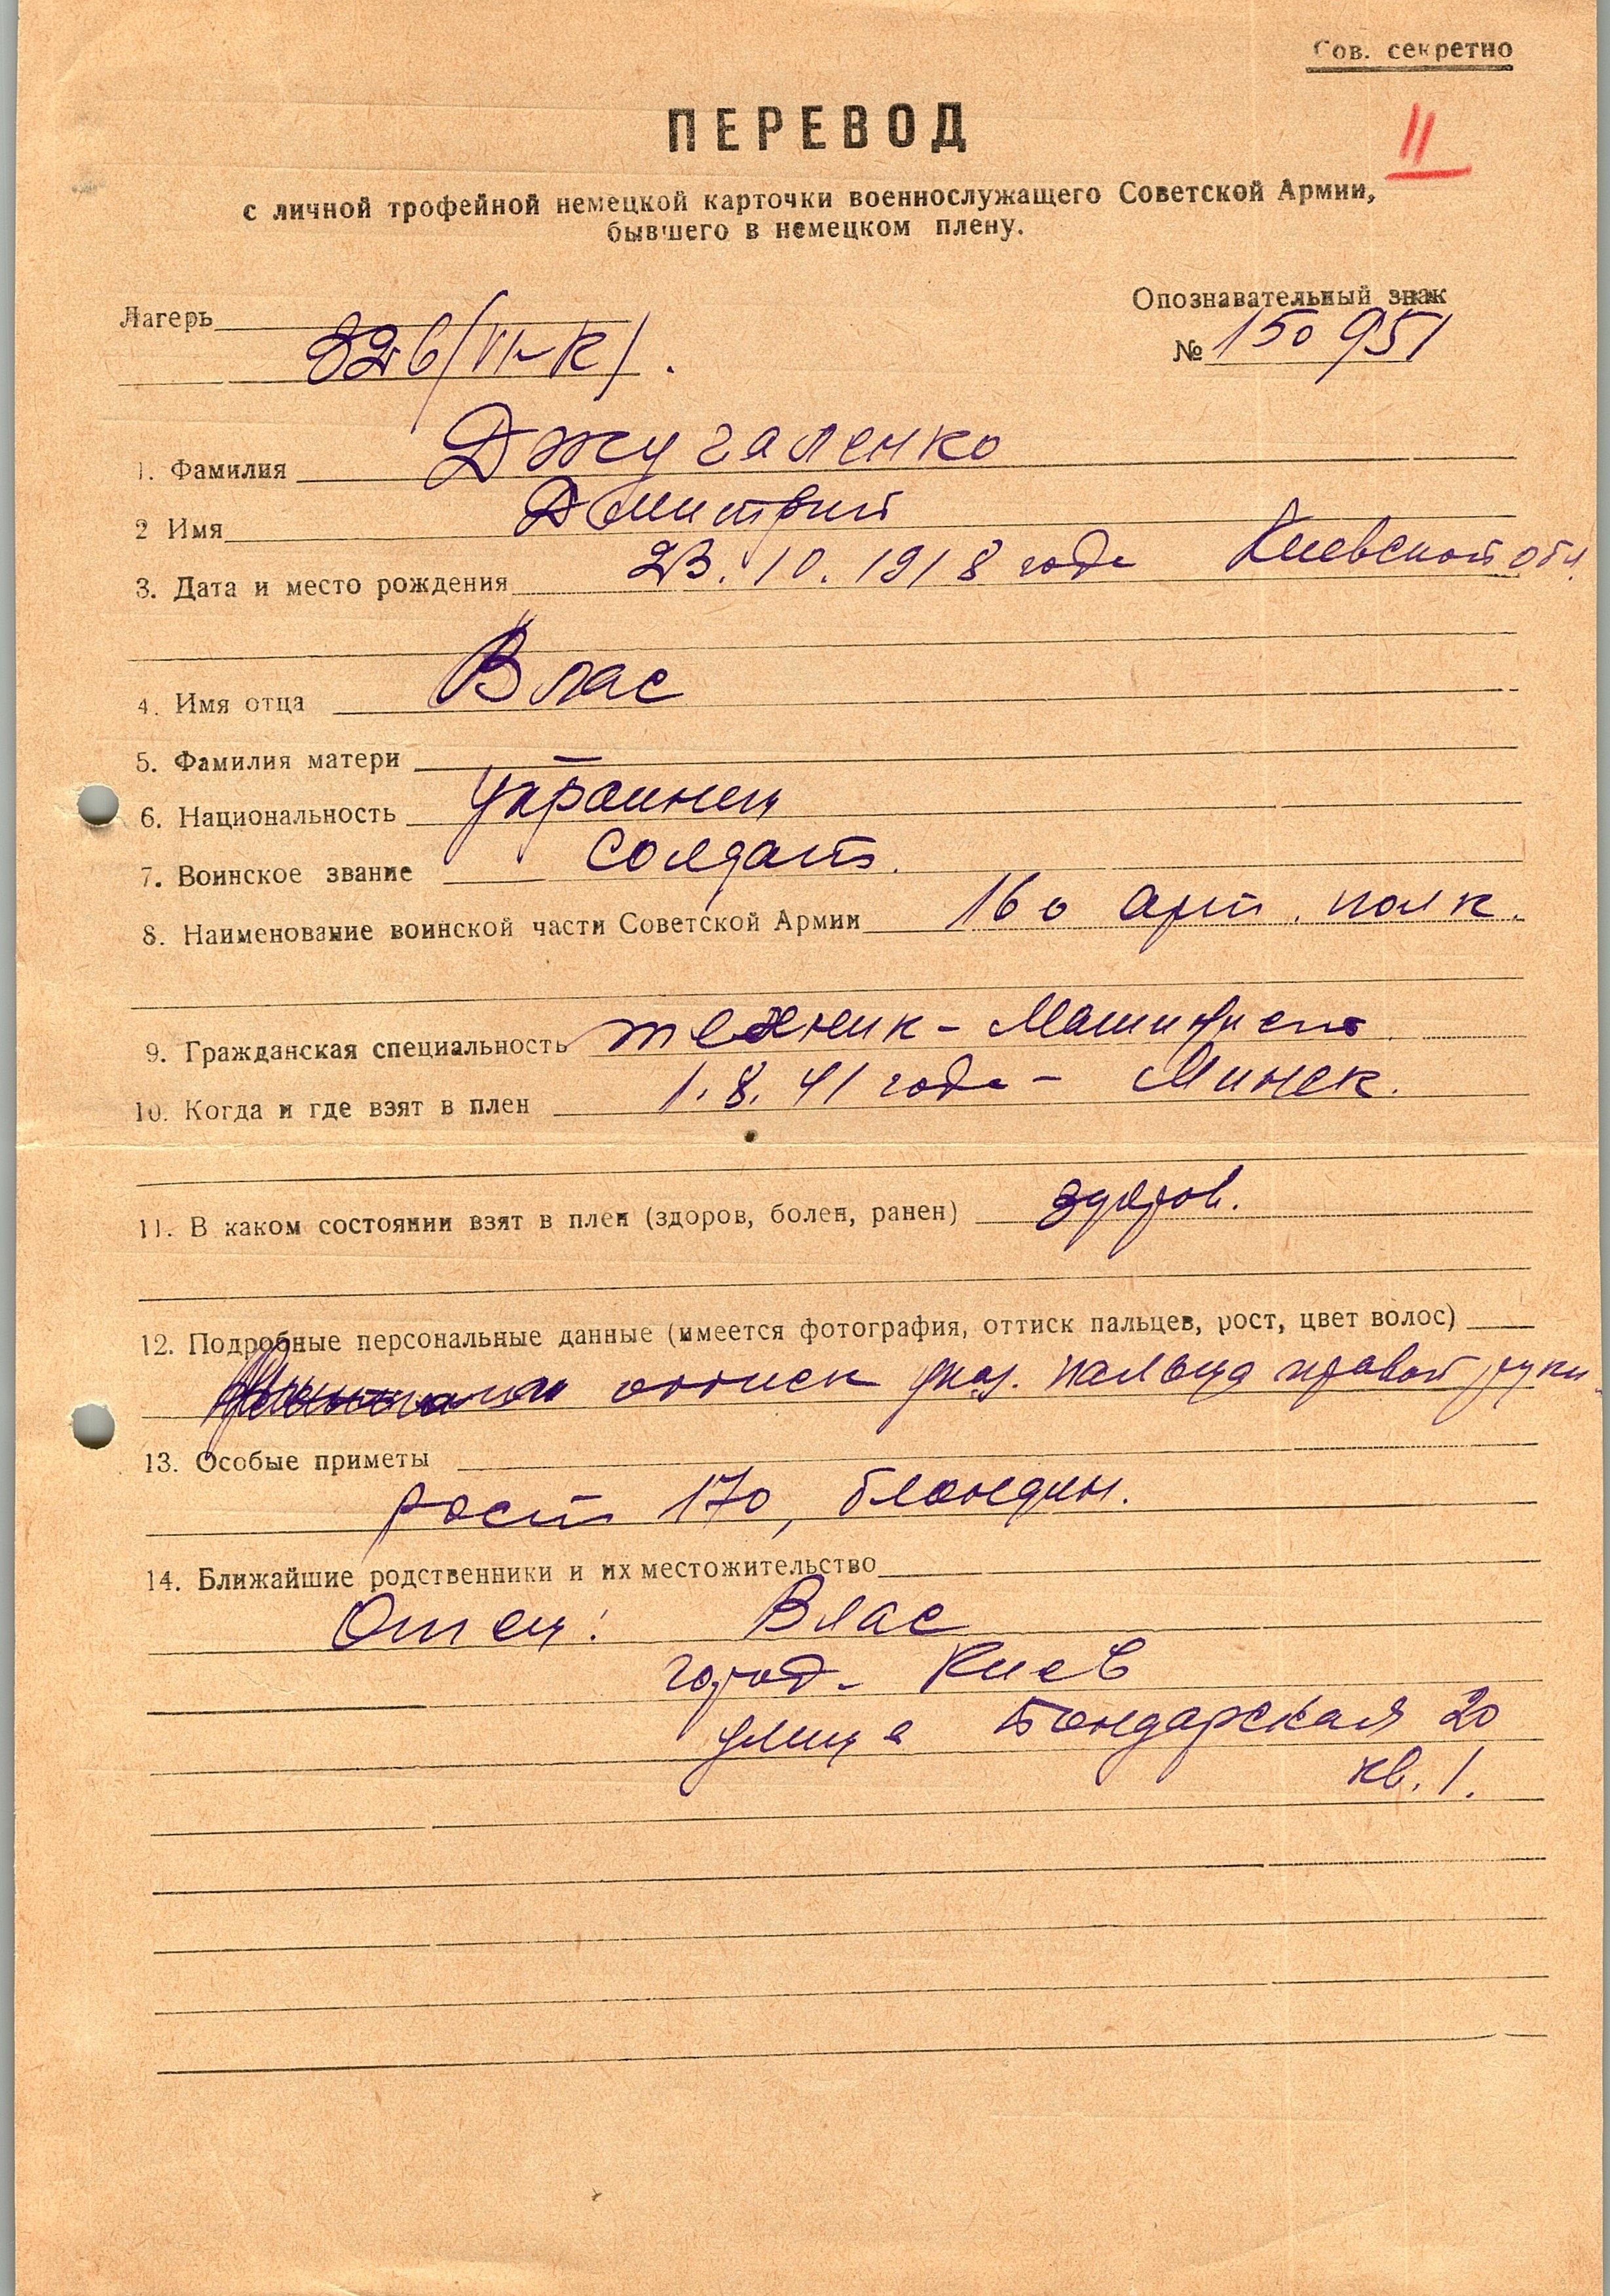 Сов. секретно
ПЕРЕВОД
11
с личной трофейной немецкой карточки военнослужащего Советской Армии,
бывшего в немецком плену.
Лагерь
Опознавательный знак
326/VI-К/.
№ 150951
1. Фамилия Джугаленко
2 Имя Дмитрий
3. Дата и место рождения 23.10.1918 года Киевской обл.
4. Имя отца Влас
5. Фамилия матери —
6. Национальность украинец
7. Воинское звание солдат.
8. Наименование воинской части Советской Армии 160 арт. полк.
9. Гражданская специальность техник - машинист.
10. Когда и где взят в плен 1.8.41 года - Минск.
11. В каком состоянии взят в плен (здоров, болен, ранен) здоров.
12. Подробные персональные данные (имеется фотография, оттиск пальцев, рост, цвет волос)
оттиск указ. пальца правой руки.
13. Особые приметы
рост 170, блондин.
14. Ближайшие родственники и их местожительство
Отец: Влас
город - Киев
улица Бондарская 20
кв. 1.